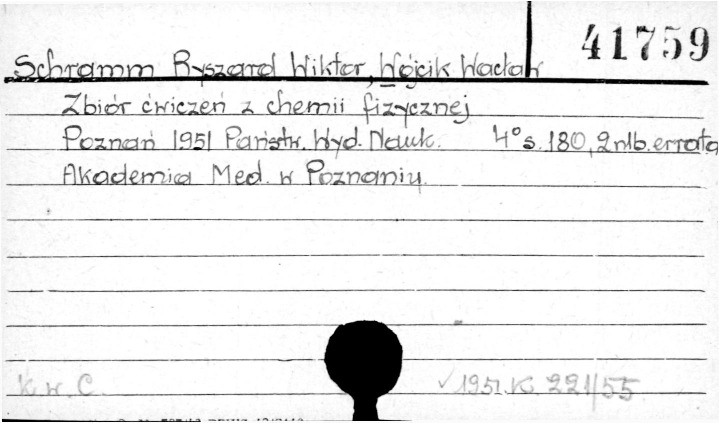 41759
Schramm Ryszard Wiktor, Wójcik Wacław
Zbiór ćwiczeń z chemii fizycznej
Poznań 1951 Państw. Wyd. Nauk. 4° s. 180, 2 nlb. errata
Akademia Med. w Poznaniu.
K. w. C. 1951. K. 221/55